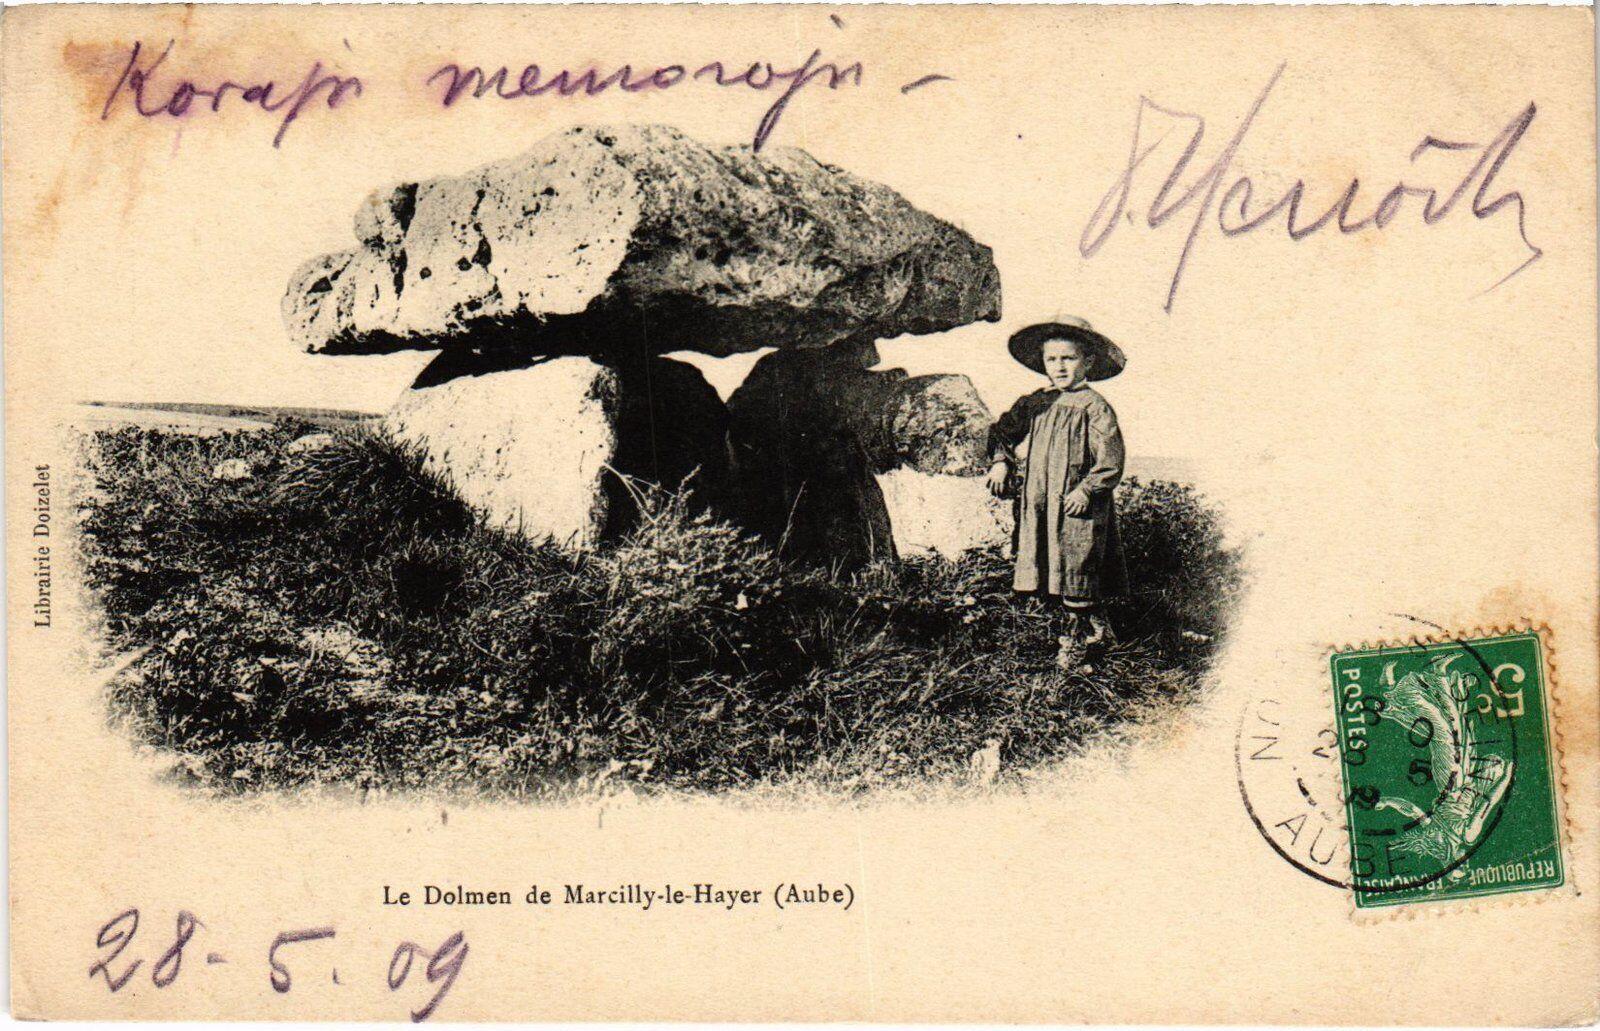 Korajn memorojn -
Librairie Doizelet
5c
POSTES
REPUBLIQUE
FRANÇAISE
SEINE
AUBE
Le Dolmen de Marcilly-le-Hayer (Aube)
28-5.09